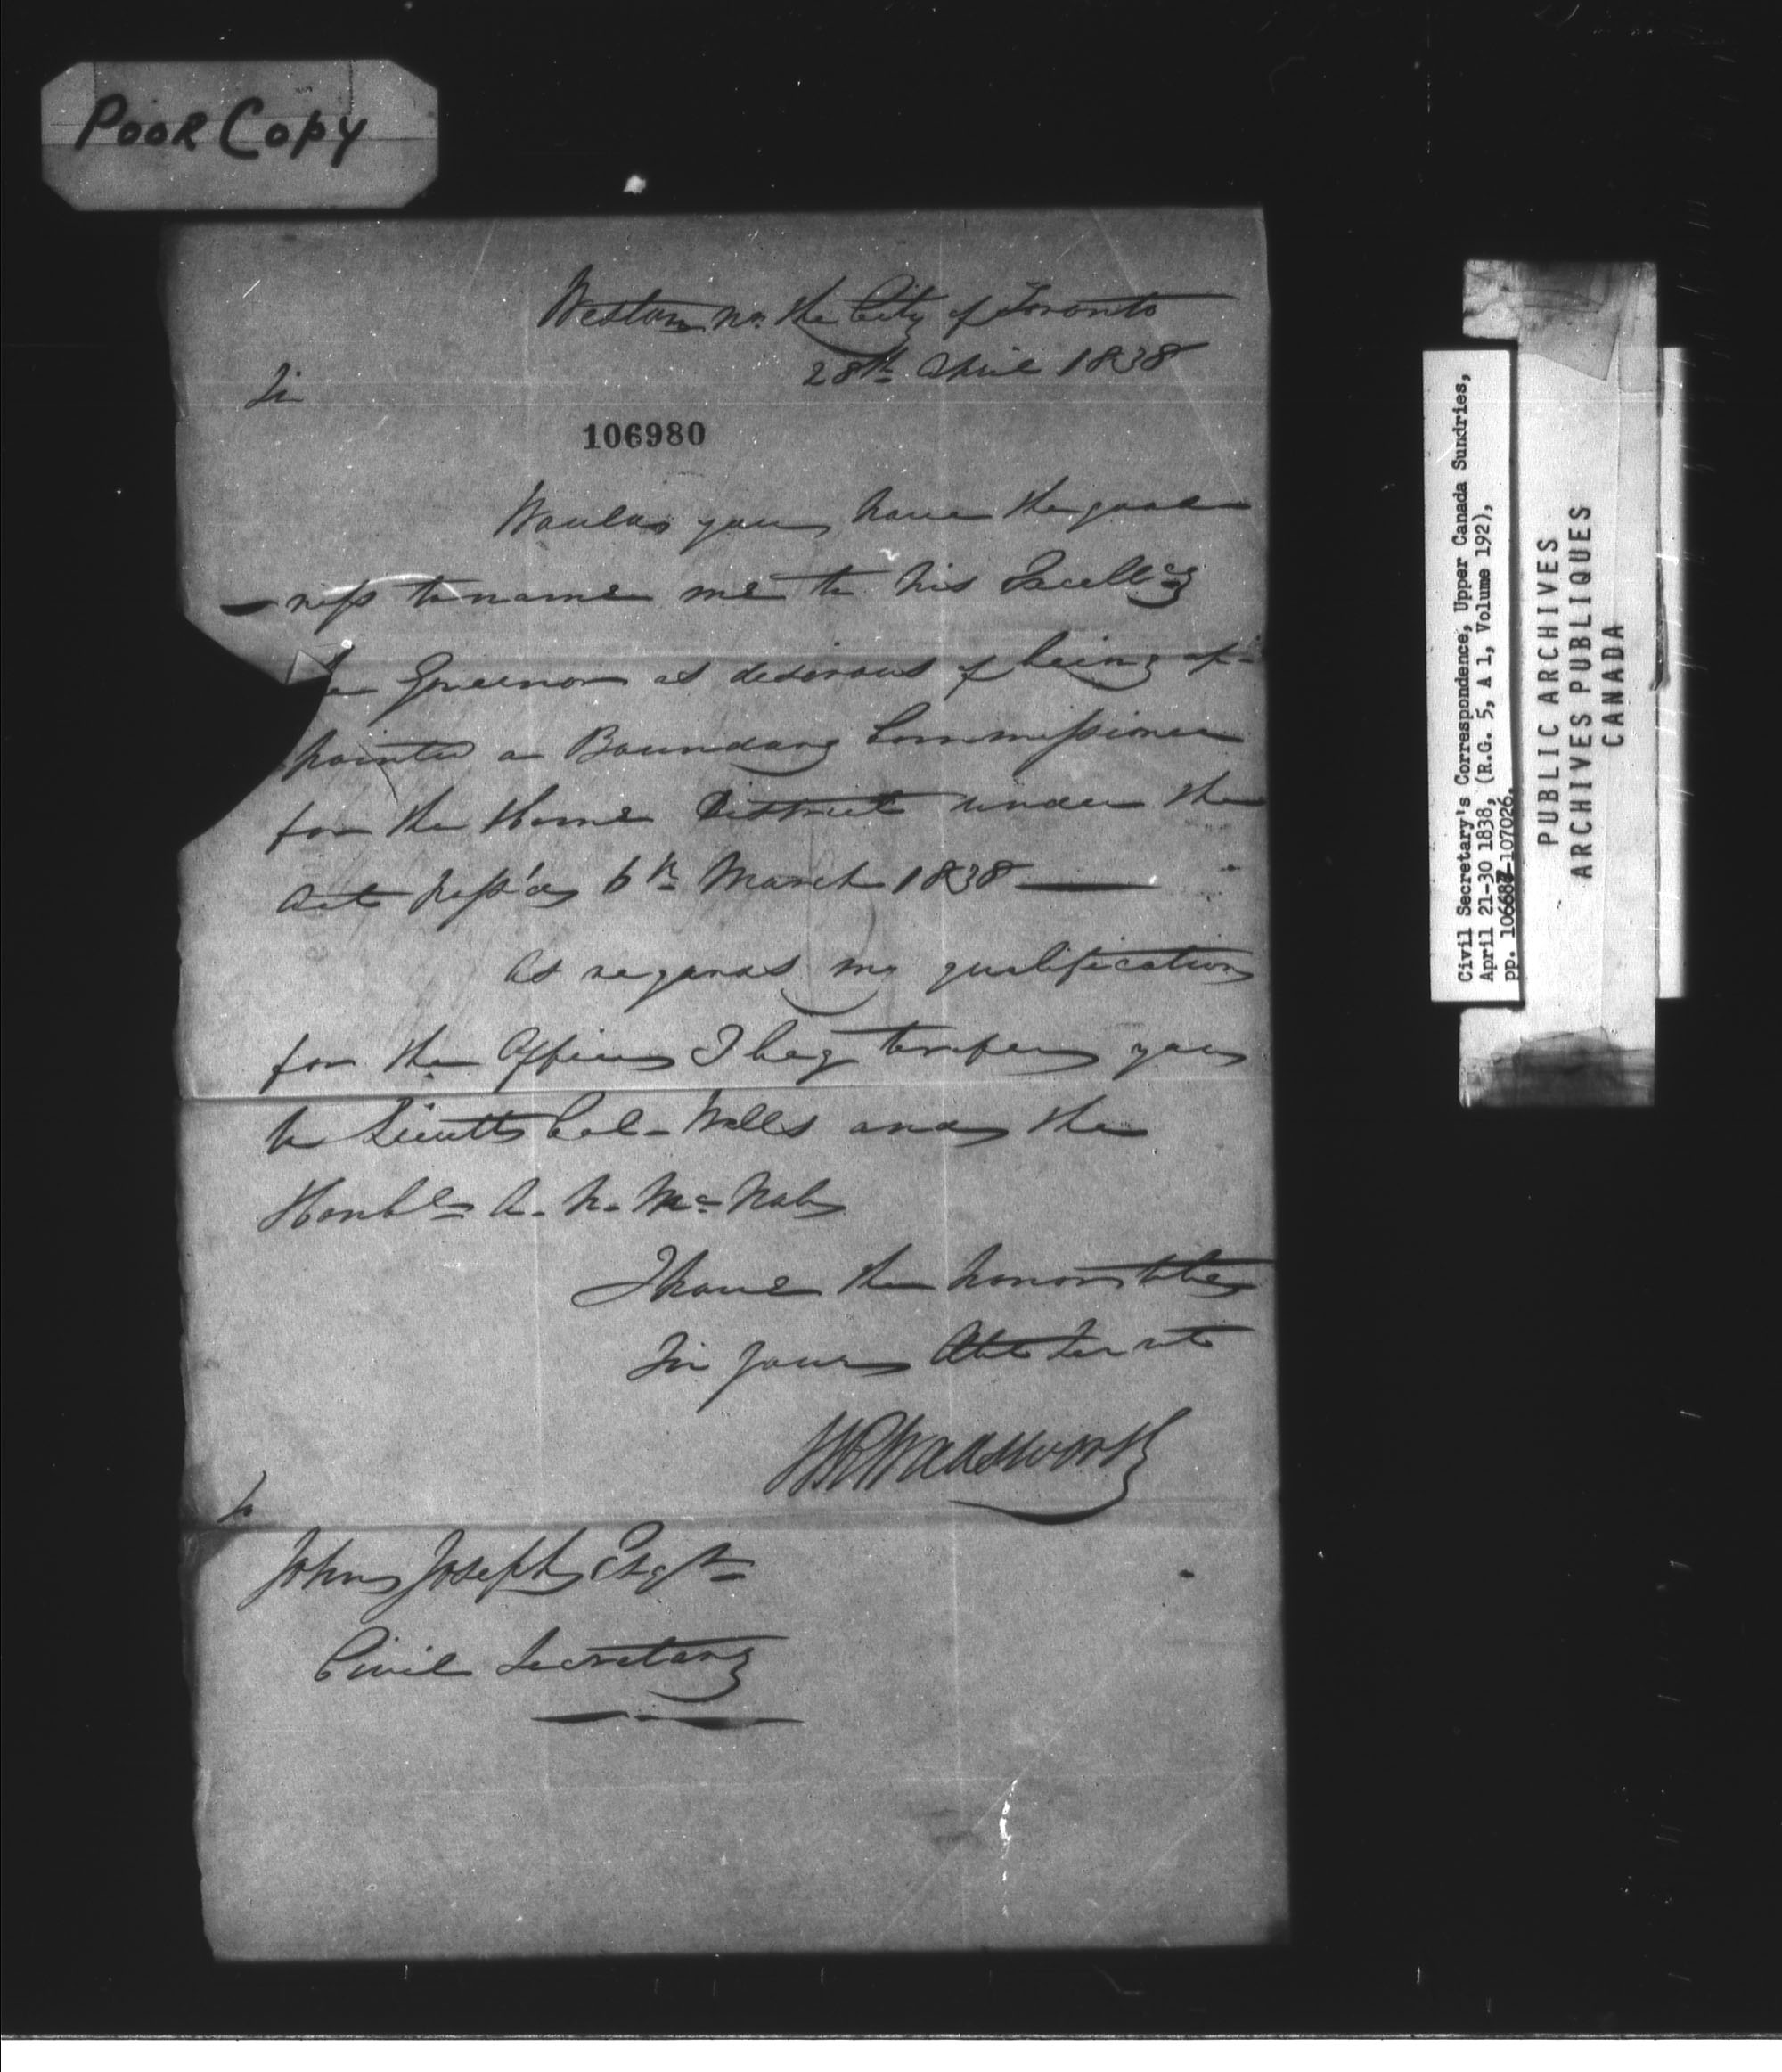 Poor Copy
Weston nr. the City of Toronto
28th April 1838
Sir
106980
Would you have the good
-ness to name me to his Excellcy
Governor as desirous of being ap-
pointed a Boundary Commissioner
for the Home District under the
Act pass'd 6th March 1838 —
As regards my qualification
for the Office I beg to refer you
to Lieutt Col- Wells and the
Honble A. N. McNab
I have the honor to be
Sir your Obt Servt
WR Wadsworth
To
John Joseph Esqr
Civil Secretary
Civil Secretary's Correspondence, Upper Canada Sundries,
April 21-30 1838, (R.G. 5, A 1, Volume 192),
pp. 106687-107026.
PUBLIC ARCHIVES
ARCHIVES PUBLIQUES
CANADA